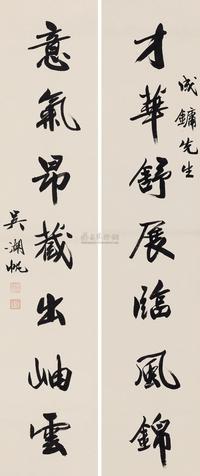 成鏞先生
才華舒展臨風錦
意氣昂藏出岫雲
吳湖帆